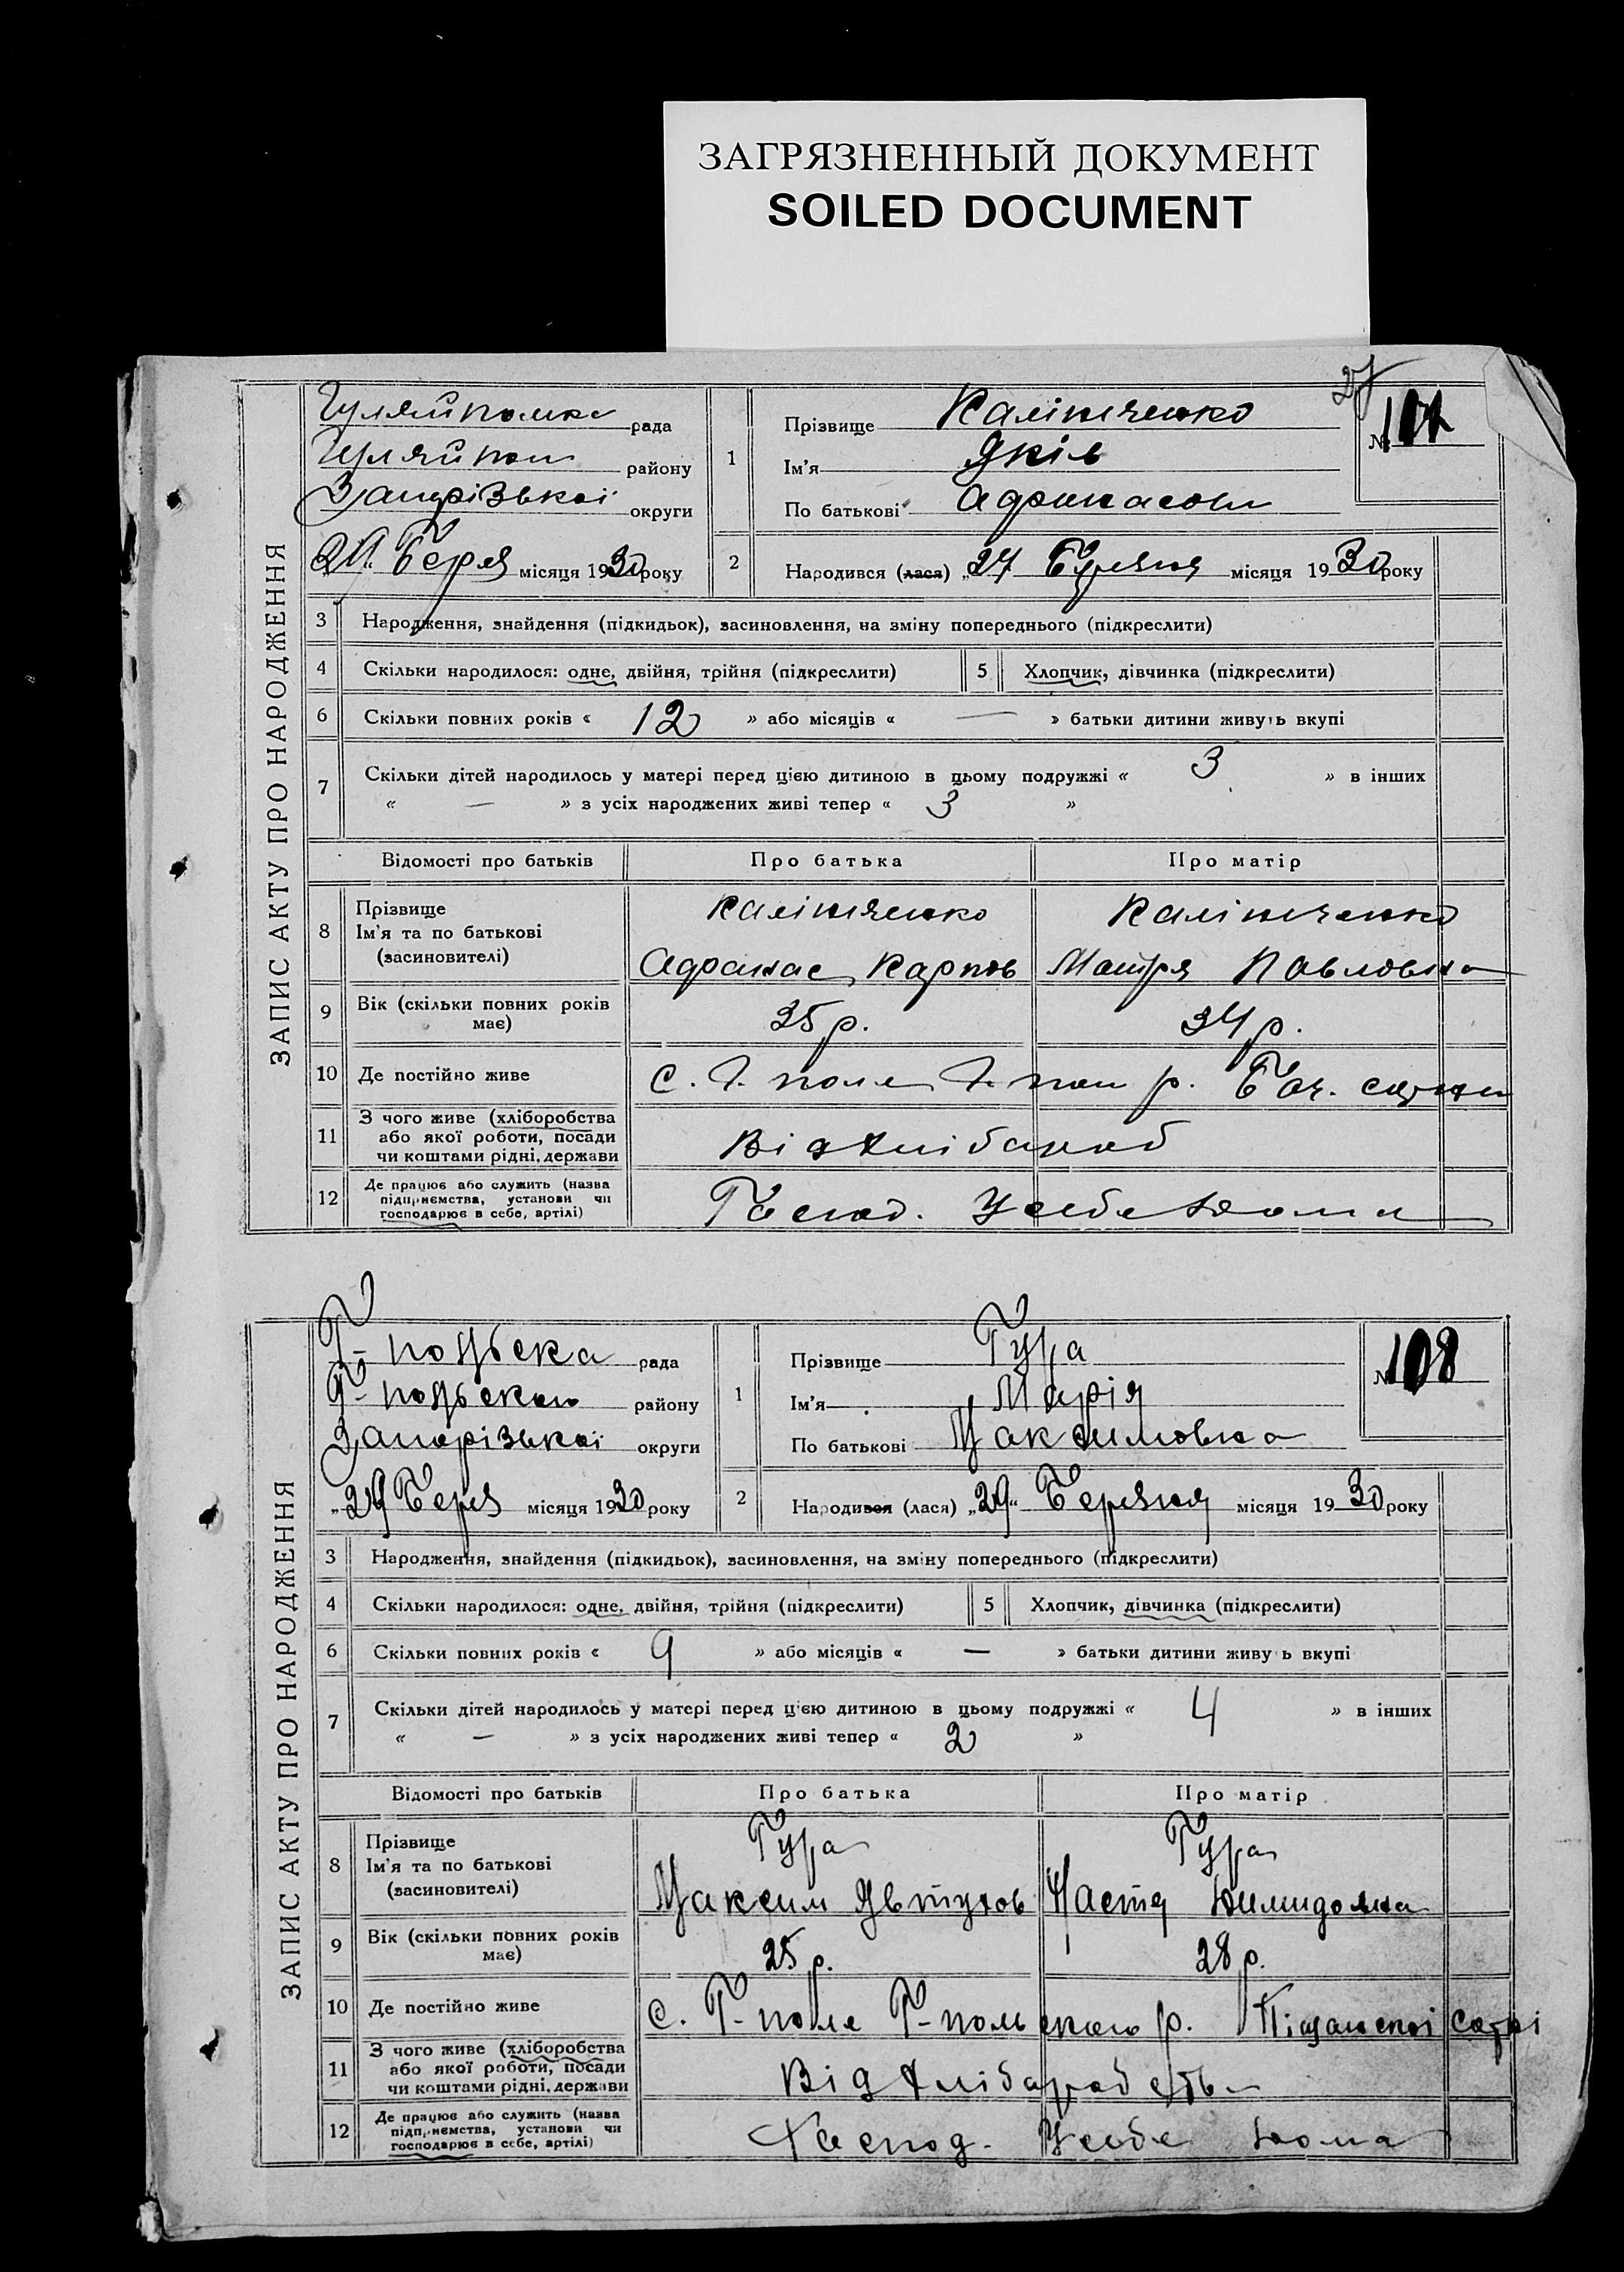 ЗАГРЯЗНЕННЫЙ ДОКУМЕНТ
SOILED DOCUMENT
27
ЗАПИС АКТУ ПРО НАРОДЖЕННЯ
рада
району
Запорізької округи
29 Берез місяця 1930 року
№ 107
1 Прізвище Калініченко
Ім'я Яків
По батькові
2 Народився (лася) „27 Березня місяця 1930 року
3 Народження, знайдення (підкидьок), засиновлення, на зміну попереднього (підкреслити)
4 Скільки народилося: одне, двійня, трійня (підкреслити) 5 Хлопчик, дівчинка (підкреслити)
6 Скільки повних років « 12 » або місяців « — » батьки дитини живуть вкупі
7 Скільки дітей народилось у матері перед цією дитиною в цьому подружжі « 3 » в інших
« — » з усіх народжених живі тепер « 3 »
Відомості про батьків Про батька Про матір
8 Прізвище Калініченко Калініченко
Ім'я та по батькові
(засновителі) Афанас Карпов Мотря Павловна
9 Вік (скільки повних років має) 35 р. 34 р.
10 Де постійно живе С. Г. поле Г. пол р.
11 З чого живе (хліборобства
або якої роботи, посади
чи коштами рідні, держави Від хлібороб
12 Де працює або служить (назва
підприємства, установи чи
господарює в себе, артілі) Господ. У себе дома
ЗАПИС АКТУ ПРО НАРОДЖЕННЯ
Г-польска рада
Г-польского району
Запорізької округи
„29 Берез місяця 1930 року
№ 108
1 Прізвище Гура
Ім'я Марія
По батькові Максимовна
2 Народився (лася) „29“ Березня місяця 1930 року
3 Народження, знайдення (підкидьок), засиновлення, на зміну попереднього (підкреслити)
4 Скільки народилося: одне, двійня, трійня (підкреслити) 5 Хлопчик, дівчинка (підкреслити)
6 Скільки повних років « 9 » або місяців « — » батьки дитини живуть вкупі
7 Скільки дітей народилось у матері перед цією дитиною в цьому подружжі « 4 » в інших
« — » з усіх народжених живі тепер « 2 »
Відомості про батьків Про батька Про матір
8 Прізвище Гура Гура
Ім'я та по батькові
(засиновителі) Максим Явтухов Настя
9 Вік (скільки повних років має) 25 р. 28 р.
10 Де постійно живе С. Г-поле Г-польского р. Піщанскої сотні
11 З чого живе (хліборобства
або якої роботи, посади
чи коштами рідні, держави Від хліборобства
12 Де працює або служить (назва
підприємства, установи чи
господарює в себе, артілі) Господ. У себе дома